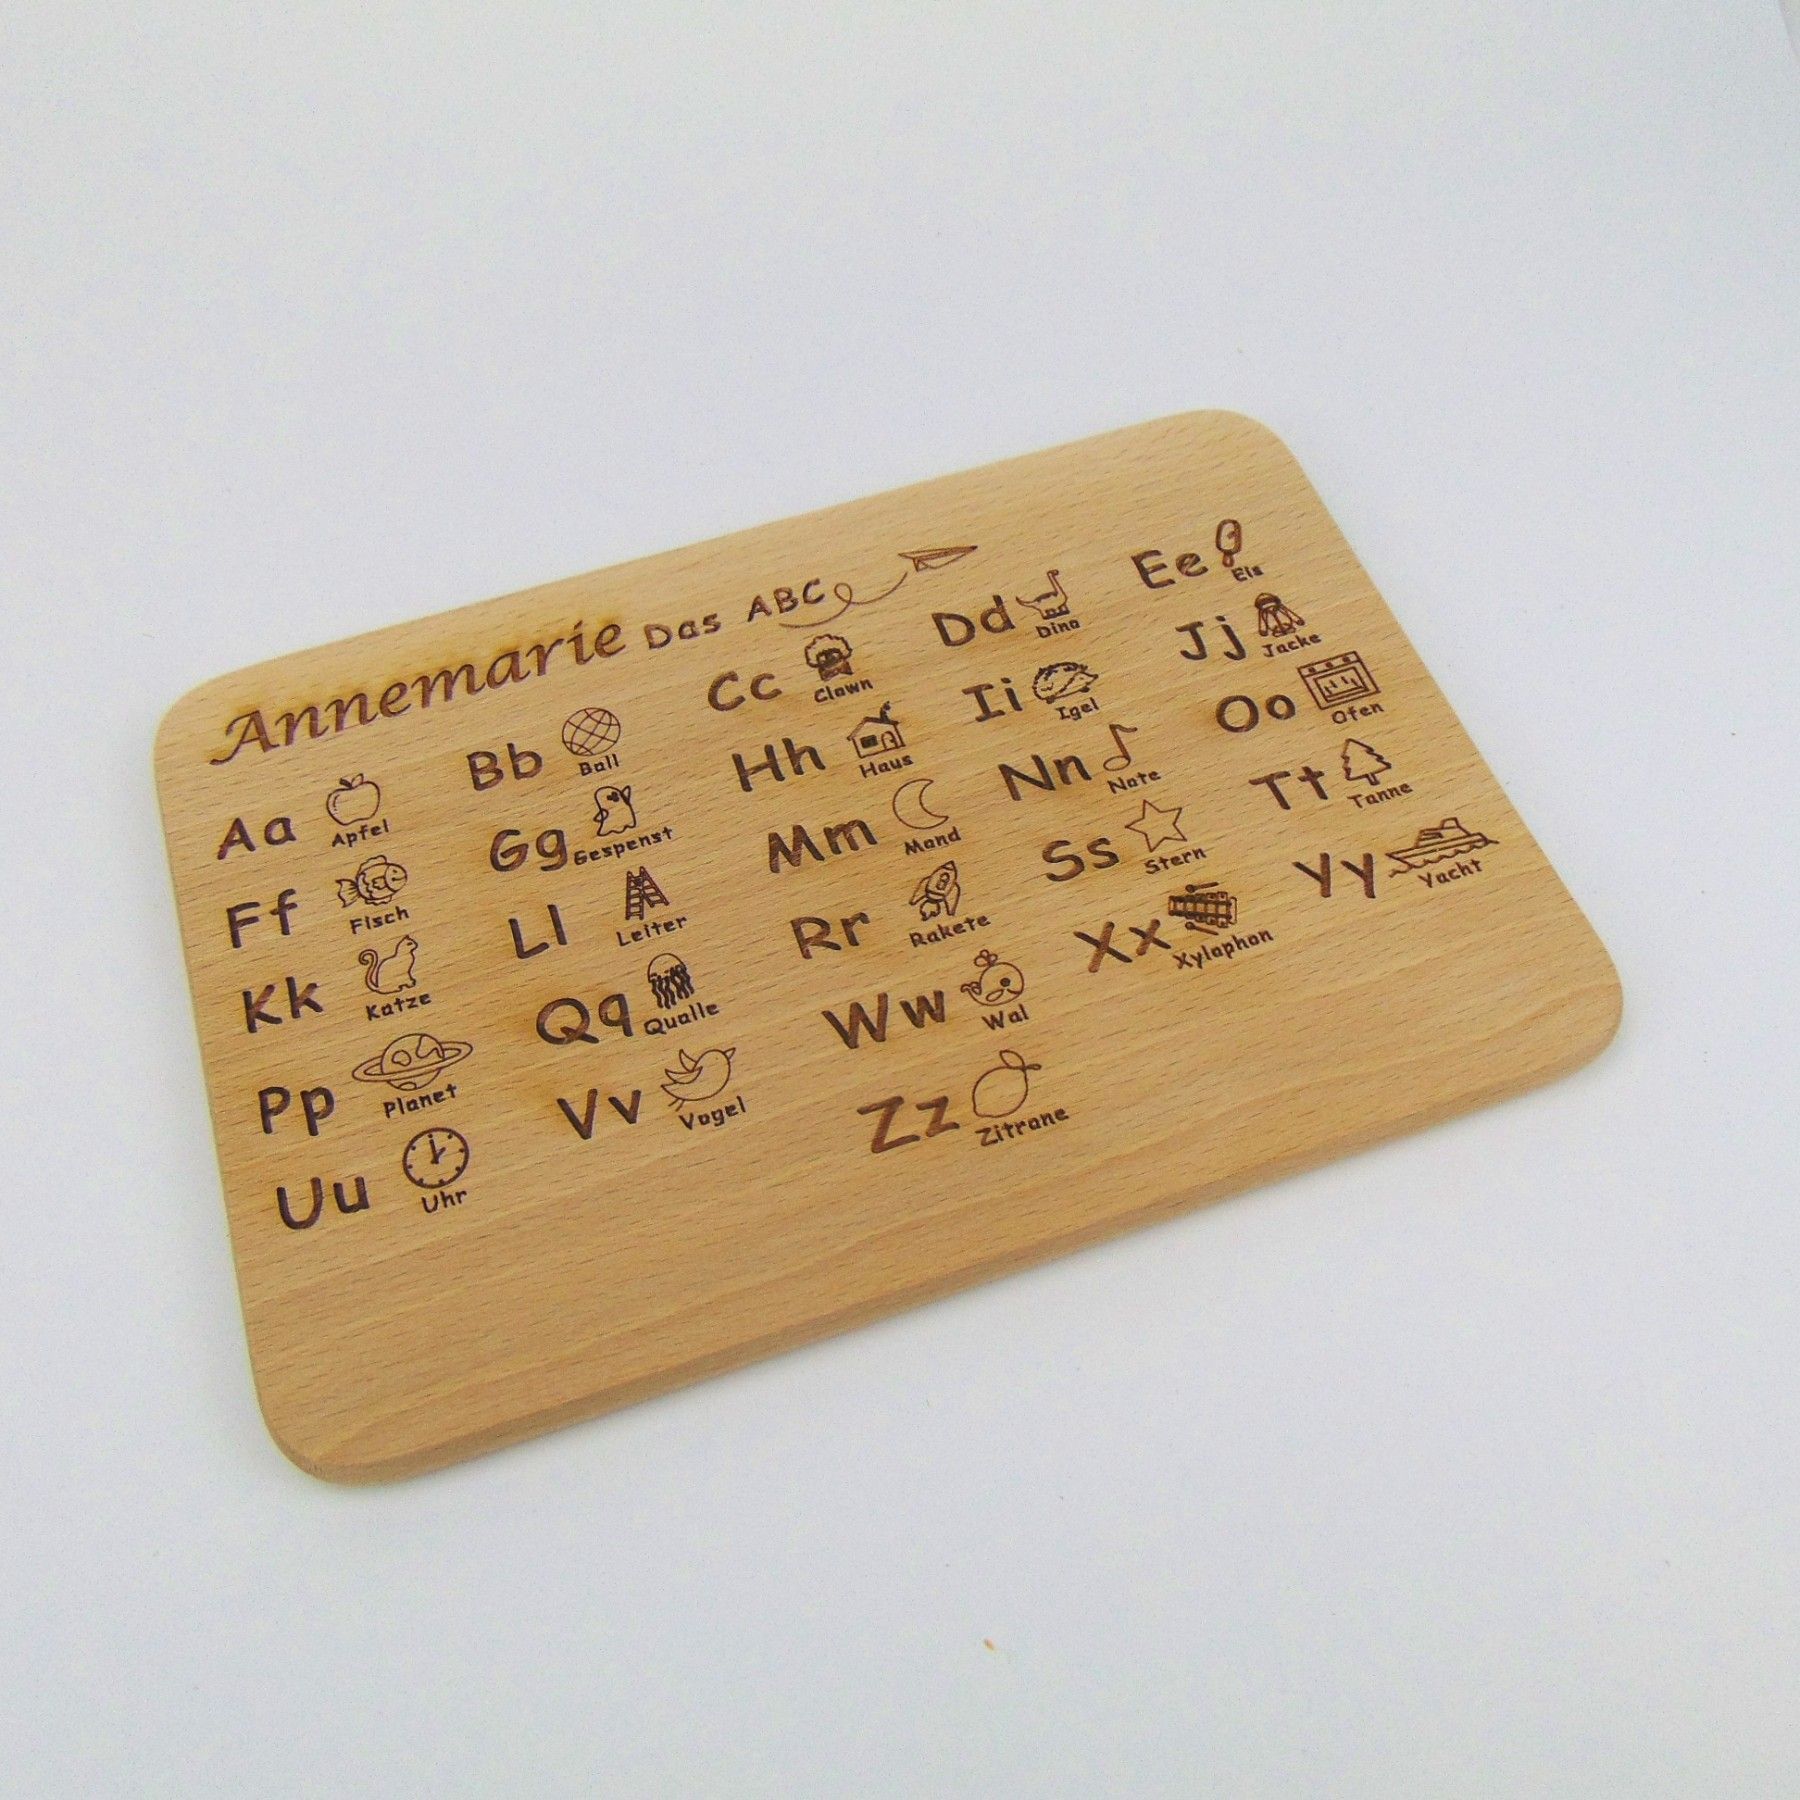 Annemarie Das ABC
Aa Apfel Bb Ball Cc Clown Dd Dino Ee Eis
Ff Fisch Gg Gespenst Hh Haus Ii Igel Jj Jacke
Kk Katze Ll Leiter Mm Mond Nn Note Oo Ofen
Pp Planet Qq Qualle Rr Rakete Ss Stern Tt Tanne
Uu Uhr Vv Vogel Ww Wal Xx Xylophon Yy Yacht
Zz Zitrone